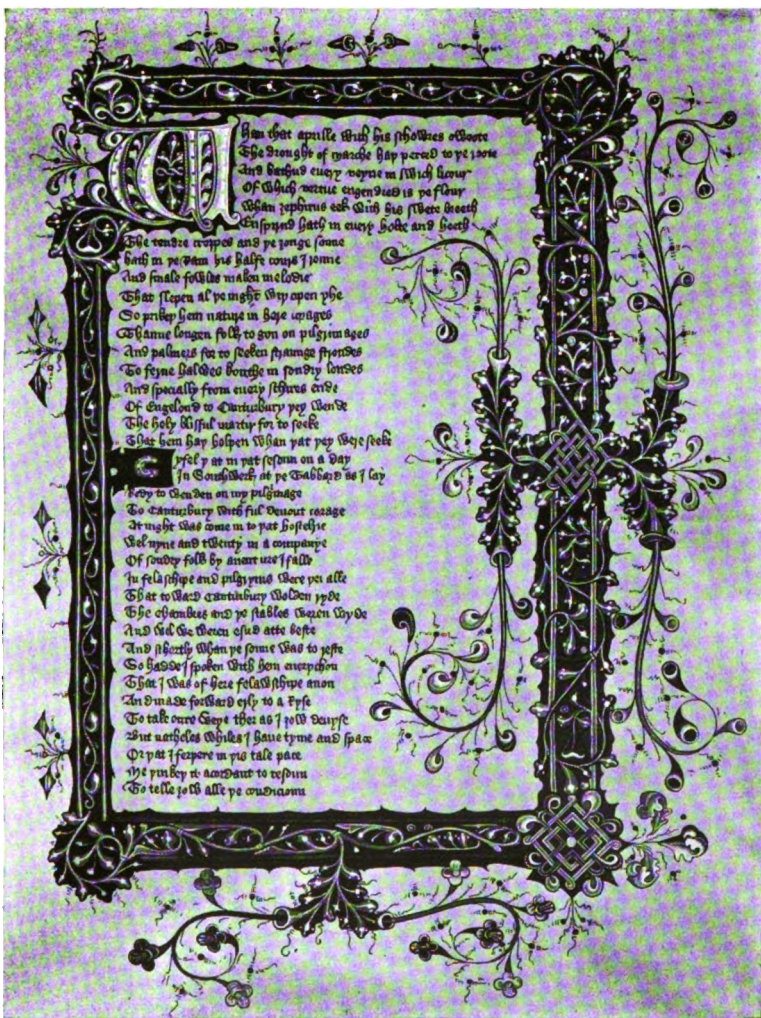 Whan that aprille with his schowres swoote
The drought of marche haþ perced to þe roote
And bathud euery veyne in swich licour
Of which vertue engendred is þe flour
Whan zephirus eek with his swete breeth
Enspirud hath in euery holte and heeth
The tendre croppes and þe ȝonge sonne
hath in þe Ram his halfe cours I ronne
And smale fowles maken melodie
That slepen al þe night wiþ open yhe
So prikeþ hem nature in here corages
Thanne longen folk to gon on pilgrimages
And palmers for to seeken straunge strondes
To ferne halwes kouthe in sondry londes
And specially from euery schires ende
Of Engelond to Canturbury þey wende
The holy blisful martir for to seeke
That hem haþ holpen whan þat þey were seeke
Byfel þ at in þat sesoun on a day
In Southwerk at þe Tabbard as I lay
Redy to wenden on my pilgrimage
To Canturbury with ful deuout corage
At night was come in to þat hostelrie
Wel nyne and twenty in a companye
Of sondry folk by auenture I falle
In felaschipe and pilgryms were þei alle
That to ward Canturbury wolden ryde
The chambres and þe stables weren wyde
And wel we weren esud atte beste
And schortly whan þe sonne was to reste
So hadde I spoken with hem euerychon
That I was of here felawschipe anon
And made forward erly to a ryse
To take oure weye ther as I ȝow deuyse
But natheles whiles I haue tyme and space
Or þat I ferþere in þis tale pace
Me þinkeþ it acordant to resoun
To telle ȝow alle þe condicioun